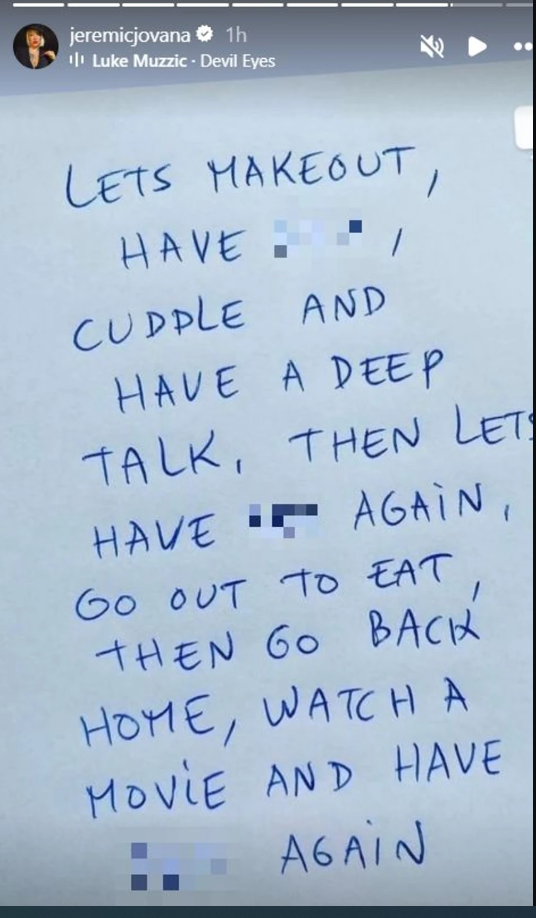 jeremicjovana 1h
Luke Muzzic · Devil Eyes
LETS MAKEOUT,
HAVE ,
CUDDLE AND
HAVE A DEEP
TALK, THEN LETS
HAVE AGAIN,
GO OUT TO EAT,
THEN GO BACK
HOME, WATCH A
MOVIE AND HAVE
AGAIN